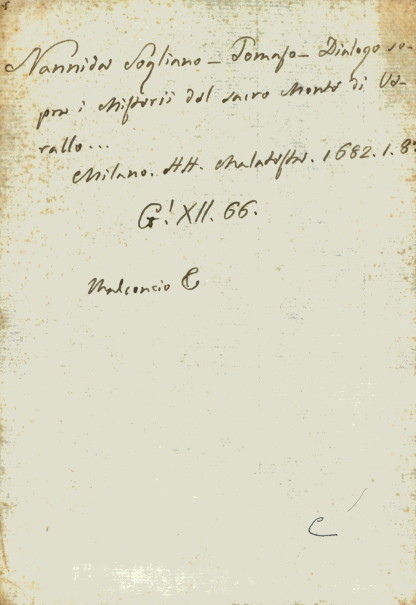 Nannida Sogliano - Tomaso - Dialogo so-
pra i Misterii del sacro Monte di Va-
rallo...
Milano. HH. Malatesta. 1682. 1. 8°
G! XII. 66.
Malconcio C
C